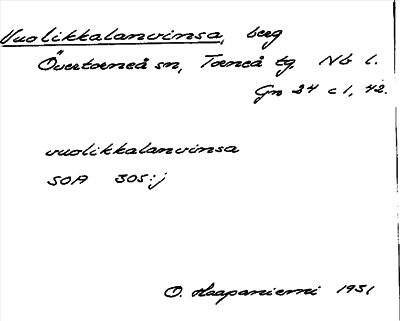 Vuolikkalanvinsa, berg
Övertorneå sn, Torneå tg. Nb l.
Gn 24 c 1, 42.
vuolikkalanvinsa
SOA 305:j
O. Haapaniemi 1931